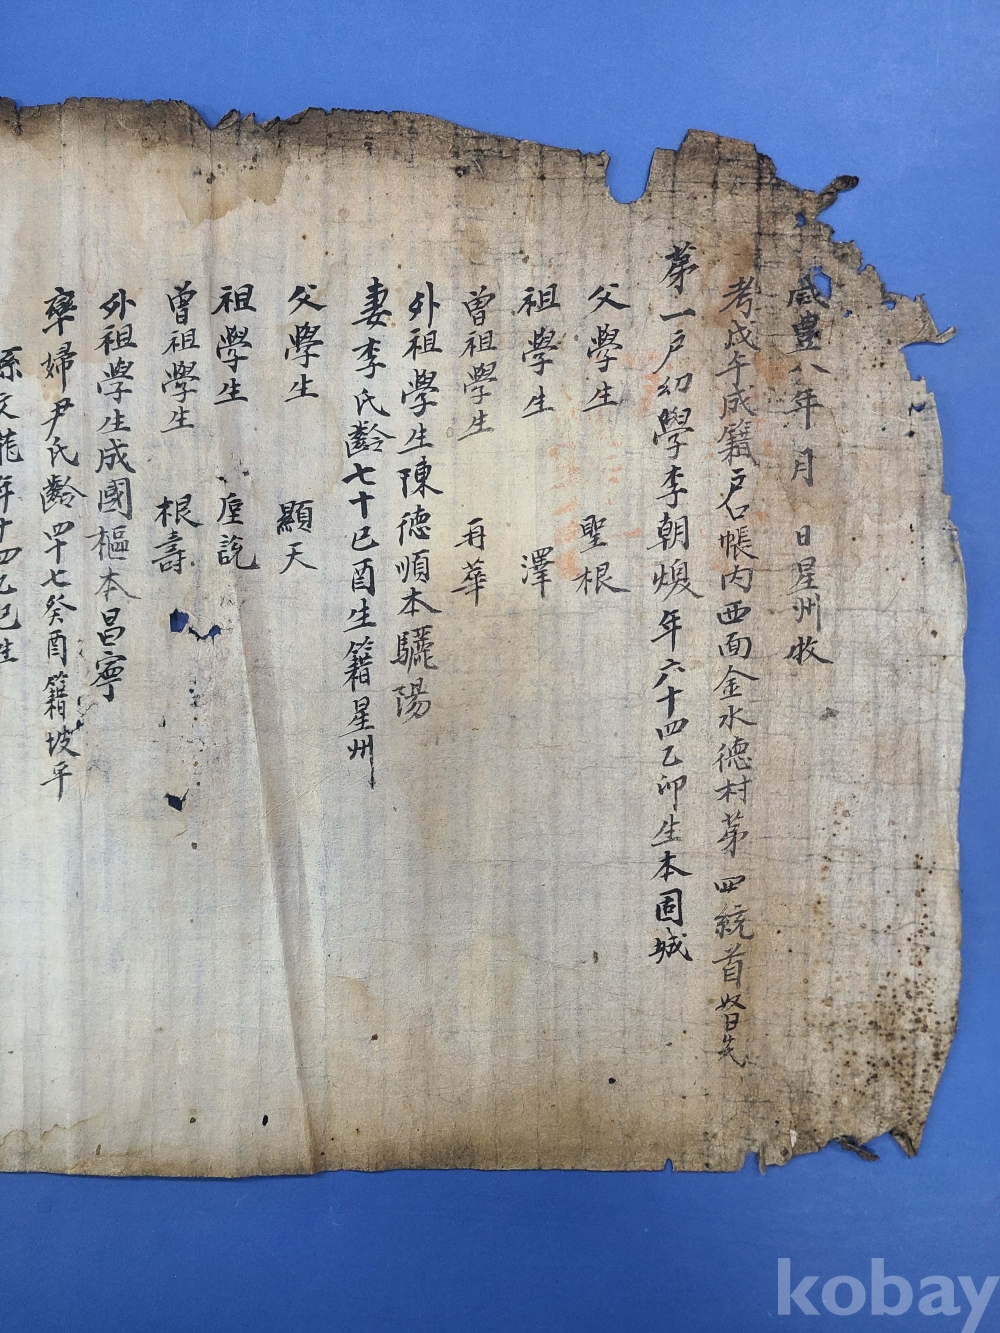 咸豊八年 月 日星州牧
考戊午成籍戶口帳內西面金水德村苐四統首奴日先
苐一戶幼學李朝煥年六十四乙卯生本固城
父學生 聖根
祖學生 澤
曾祖學生 再華
外祖學生陳德順本驪陽
妻李氏齡七十己酉生籍星州
父學生 顯天
祖學生 垕說
曾祖學生 根壽
外祖學生成國樞本昌寧
率婦尹氏齡四十七癸酉籍坡平
孫文龍年十四乙巳生
kobay